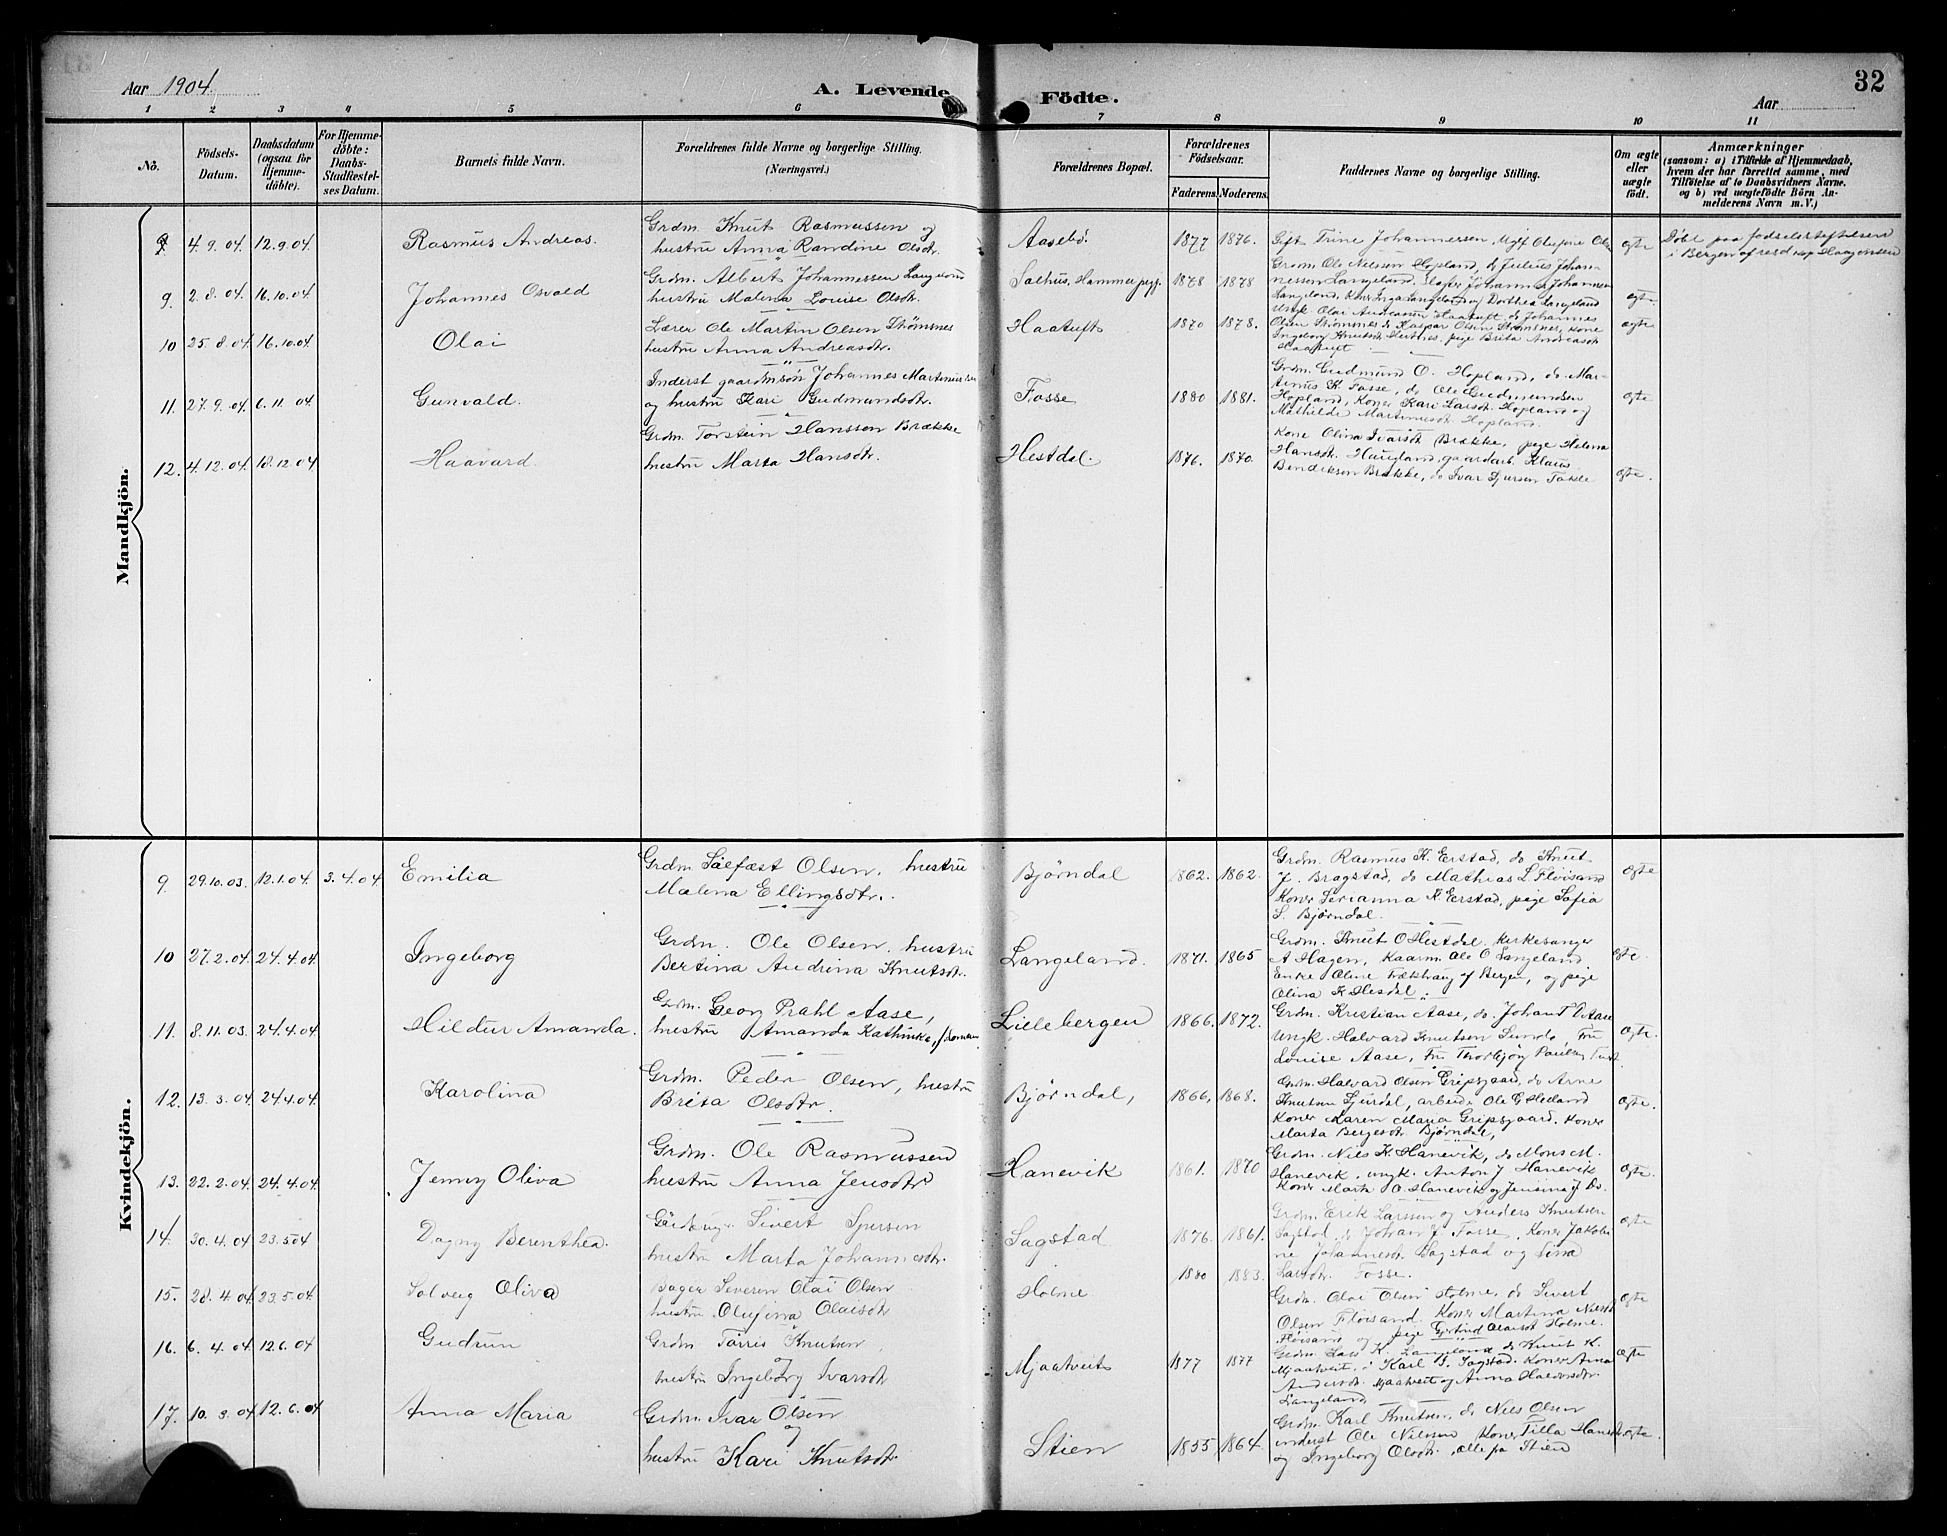 32
Aar 1904.
A. Levende Födte.
Aar
1 2 3 4 5 6 7 8 9 10 11
No.
Födsels-Datum.
Daabsdatum (ogsaa for Hjemme-döbte).
For Hjemme-döbte: Daabs-Stadfæstel-ses Datum.
Barnets fulde Navn.
Forældrenes fulde Navne og borgerlige Stilling. (Næringsvei.)
Forældrenes Bopæl.
Forældrenes Födselsaar.
Faderens. Moderens.
Faddernes Navne og borgerlige Stilling.
Om ægte eller uægte födt.
Anmærkninger
(saasom: a) i Tilfælde af Hjemmedaab,
hvem der har forrettet samme, med
Tilföielse af to Daabsvidners Navne.
og b) ved uægtefödte Börn An-
melderens Navn m. V.)
Mandkjön.
4.9.04. 12.9.04. Rasmus Andreas.
Grdm. Knut Rasmussen og
hustru Anna Randine Olsdtr.
Aasebö. 1877 1876.
Gift Trine Johannersen, Ugift
ægte
Döbt paa födselsstiftelsen
i Bergen af resd kap Haagensen
9. 2.8.04. 16.10.04. Johannes Osvald
Grdm. Albert Johannessen Langeland
hustru Malena Louise Olsdtr.
Salhus, Hammer pgj. 1878 1878
Grdm Ole Nilsson Hopland, do Julius Johan-
nessen Langeland, Johannes Johannesen
Langeland, Koner Inga Langeland og Dorthea Langeland
ægte
10 25.8.04. 16.10.04. Olai
Lærer Ole Martin Olsen Strömsnes
hustru Anna Andreasdtr.
Haatuft 1870 1878.
Ungk Olai Andreassen Haatuft, do Johannes
Olsen Strömsnes do Kaspar Olsen Strömsnes, kone
Ingeborg Knutsdtr, pige Brita Andreasdtr
Haatuft
ægte
11. 27.9.04. 6.11.04. Gunvald.
Inderst gaardmsön Johannes Martinus
og hustru Kari Gudmundsdtr.
Fosse 1880 1881.
Grdm. Gudmund O. Hopland, do Mar-
tinus K. Fosse, do Ole Gudmundsen
Hopland, Koner Kari Larsdtr. Hopland og
Mathilde Martinusdtr. Hopland.
ægte
12. 4.12.04. 18.12.04 Haavard.
Grdm. Torstein Hansson Brække
hustru Marta Hansdtr.
Hestdal. 1876. 1870.
Kone Olina Ivarsdtr Brække, pige Helena
Hansdtr. Haugland, gaardarb. Klaus
Bendikson Brække, do Ivar Sjursen
ægte.
Kvindekjön.
9. 29.10.03. 12.1.04. 3.4.04. Emilia
Grdm Sölfæst Olsen, hustru
Malena Ellingsdtr.
Björndal 1862. 1862.
Grdm. Rasmus K. Erstad, do Knut
J. Bragstad, do Mathias L Flöisand
Koner Serianna R. Erstad, pige Sofia
S. Björndal.
ægte
10 27.2.04. 24.4.04. Ingeborg
Grdm. Ole Olsen, hustru
Bertina Andrina Knutsdtr.
Langeland. 1871. 1865
Grdm. Knut O Hestdal, kirkesanger
A Hagen, Kaarm. Ole O Langeland
Enke Oline af Bergen, og pige
Olina K Hesdal
ægte.
11. 8.11.03. 24.4.04. Hildur Amanda.
Grdm. Georg Prahl Aase,
hustru Amanda Kathinka,
Lillebergen 1866. 1872.
Grdm. Kristian Aase, do. Johan Aase
Ungk. Halvard Knutsen Fru
Louise Aase, Fru
ægte.
12. 13.3.04. 24.4.04. Karolina
Grdm. Peder Olsen, hustru
Brita Olsdtr.
Björndal, 1866, 1868.
Grdm. Halvard Olsen Gripsgaard, do Arne
Knutsen arbeide Ole
Koner Karen Maria Gripsgaard, Koner
Marta Björndal,
ægte.
13. 22.2.04. 24.4.04. Jenny Oliva
Grdm. Ole Rasmussen
hustru Anna Jensdtr
Hanevik 1861. 1870
Grdm. Nils K. Hanevik, do Mons M.
Hanevik, ungk. Anton J Hanevik
Koner Marta O Hanevik og Jensina J. Do.
ægte
14. 30.4.04 23.5.04 Dagny Berenthea.
Sivert Sjursen
hustru Marta Johannesdtr.
Sagstad 1876. 1861.
Grdm. Erik Larssen og Anders Knutsen
Sagstad, do Johan J. Fosse, Koner Jakobi-
ne Johannesdtr Sagstad og Sina
Larsdtr. Fosse.
ægte
15. 28.4.04. 23.5.04. Solveig Oliva
Bager Severen Olai Olsen
hustru Olufina Olaisdtr
Holme 1880 1883.
Grdm. Olai Olsen Holme, do Sivert
Olsen Flöisand. Koner Martina Nilsdtr
Flöisand og pige Gjertrud Olaisdtr Holme.
ægte
16. 6.4.04. 12.6.04 Gudrun
Grdm. Torris Knutsen
og
hustru Ingeborg Ivarsdtr
Mjaatveit 1877 1877
Grdm. Lars K. Langeland do Knut K.
Mjaatveit, Karl J. Sagstad. Koner Anna
Andersdtr. Mjaatveit og Anna Haldorsdtr.
Langeland.
ægte
17. 10.3.04. 12.6.04 Anna Maria
Grdm. Ivar Olsen
og
hustru Kari Knutsdtr.
Stien 1855 1864.
Grdm. Karl Knutsen, do Nils Olsen
inderst Ole Nilssen Koner Tilla Hansdtr
og Ingeborg Olsdtr. alle paa Stien
ægte.